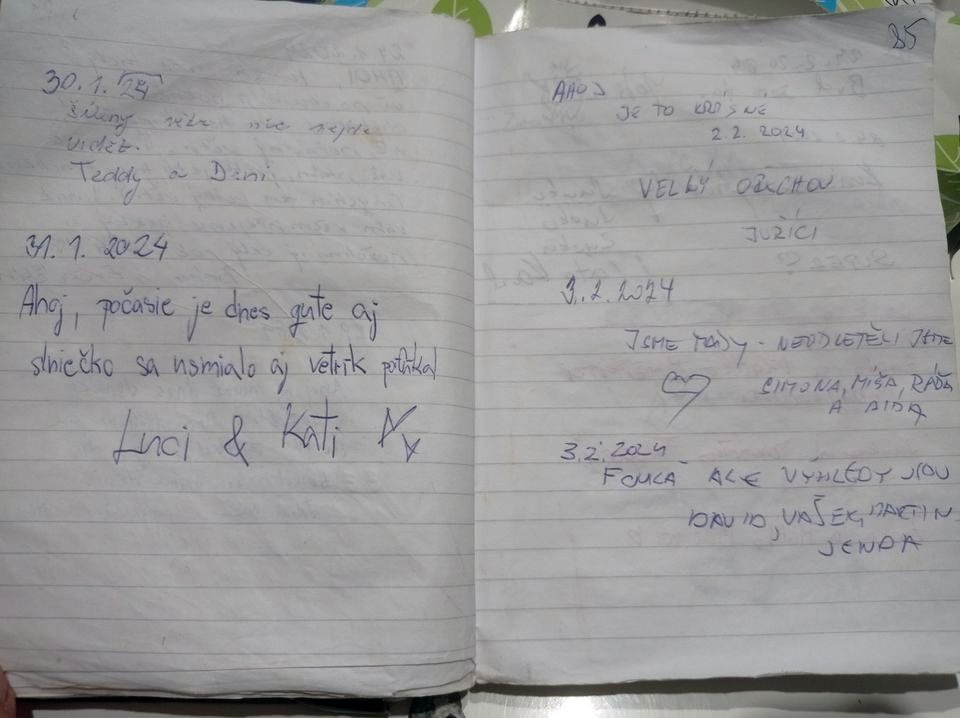 30.1. 24
nic nejde
vidět.
Teddy a Deni
31.1. 2024
Ahoj, počasie je dnes gute aj
slniečko sa usmialo aj vetrík pofúkal
Luci & Kati
85
AHOJ
JE TO KRÁSNE
2.2. 2024
VELKÝ OŘECHOV
JUŽÍCI
3.2.2024
JSME TADY - NEODLETĚLI JSME
SIMONA, MÍŠA, RÁĎA
A AIDA
3.2.2024
FOUKÁ ALE VÝHLEDY JSOU
DAVID, VAŠEK, MARTIN
JENDA